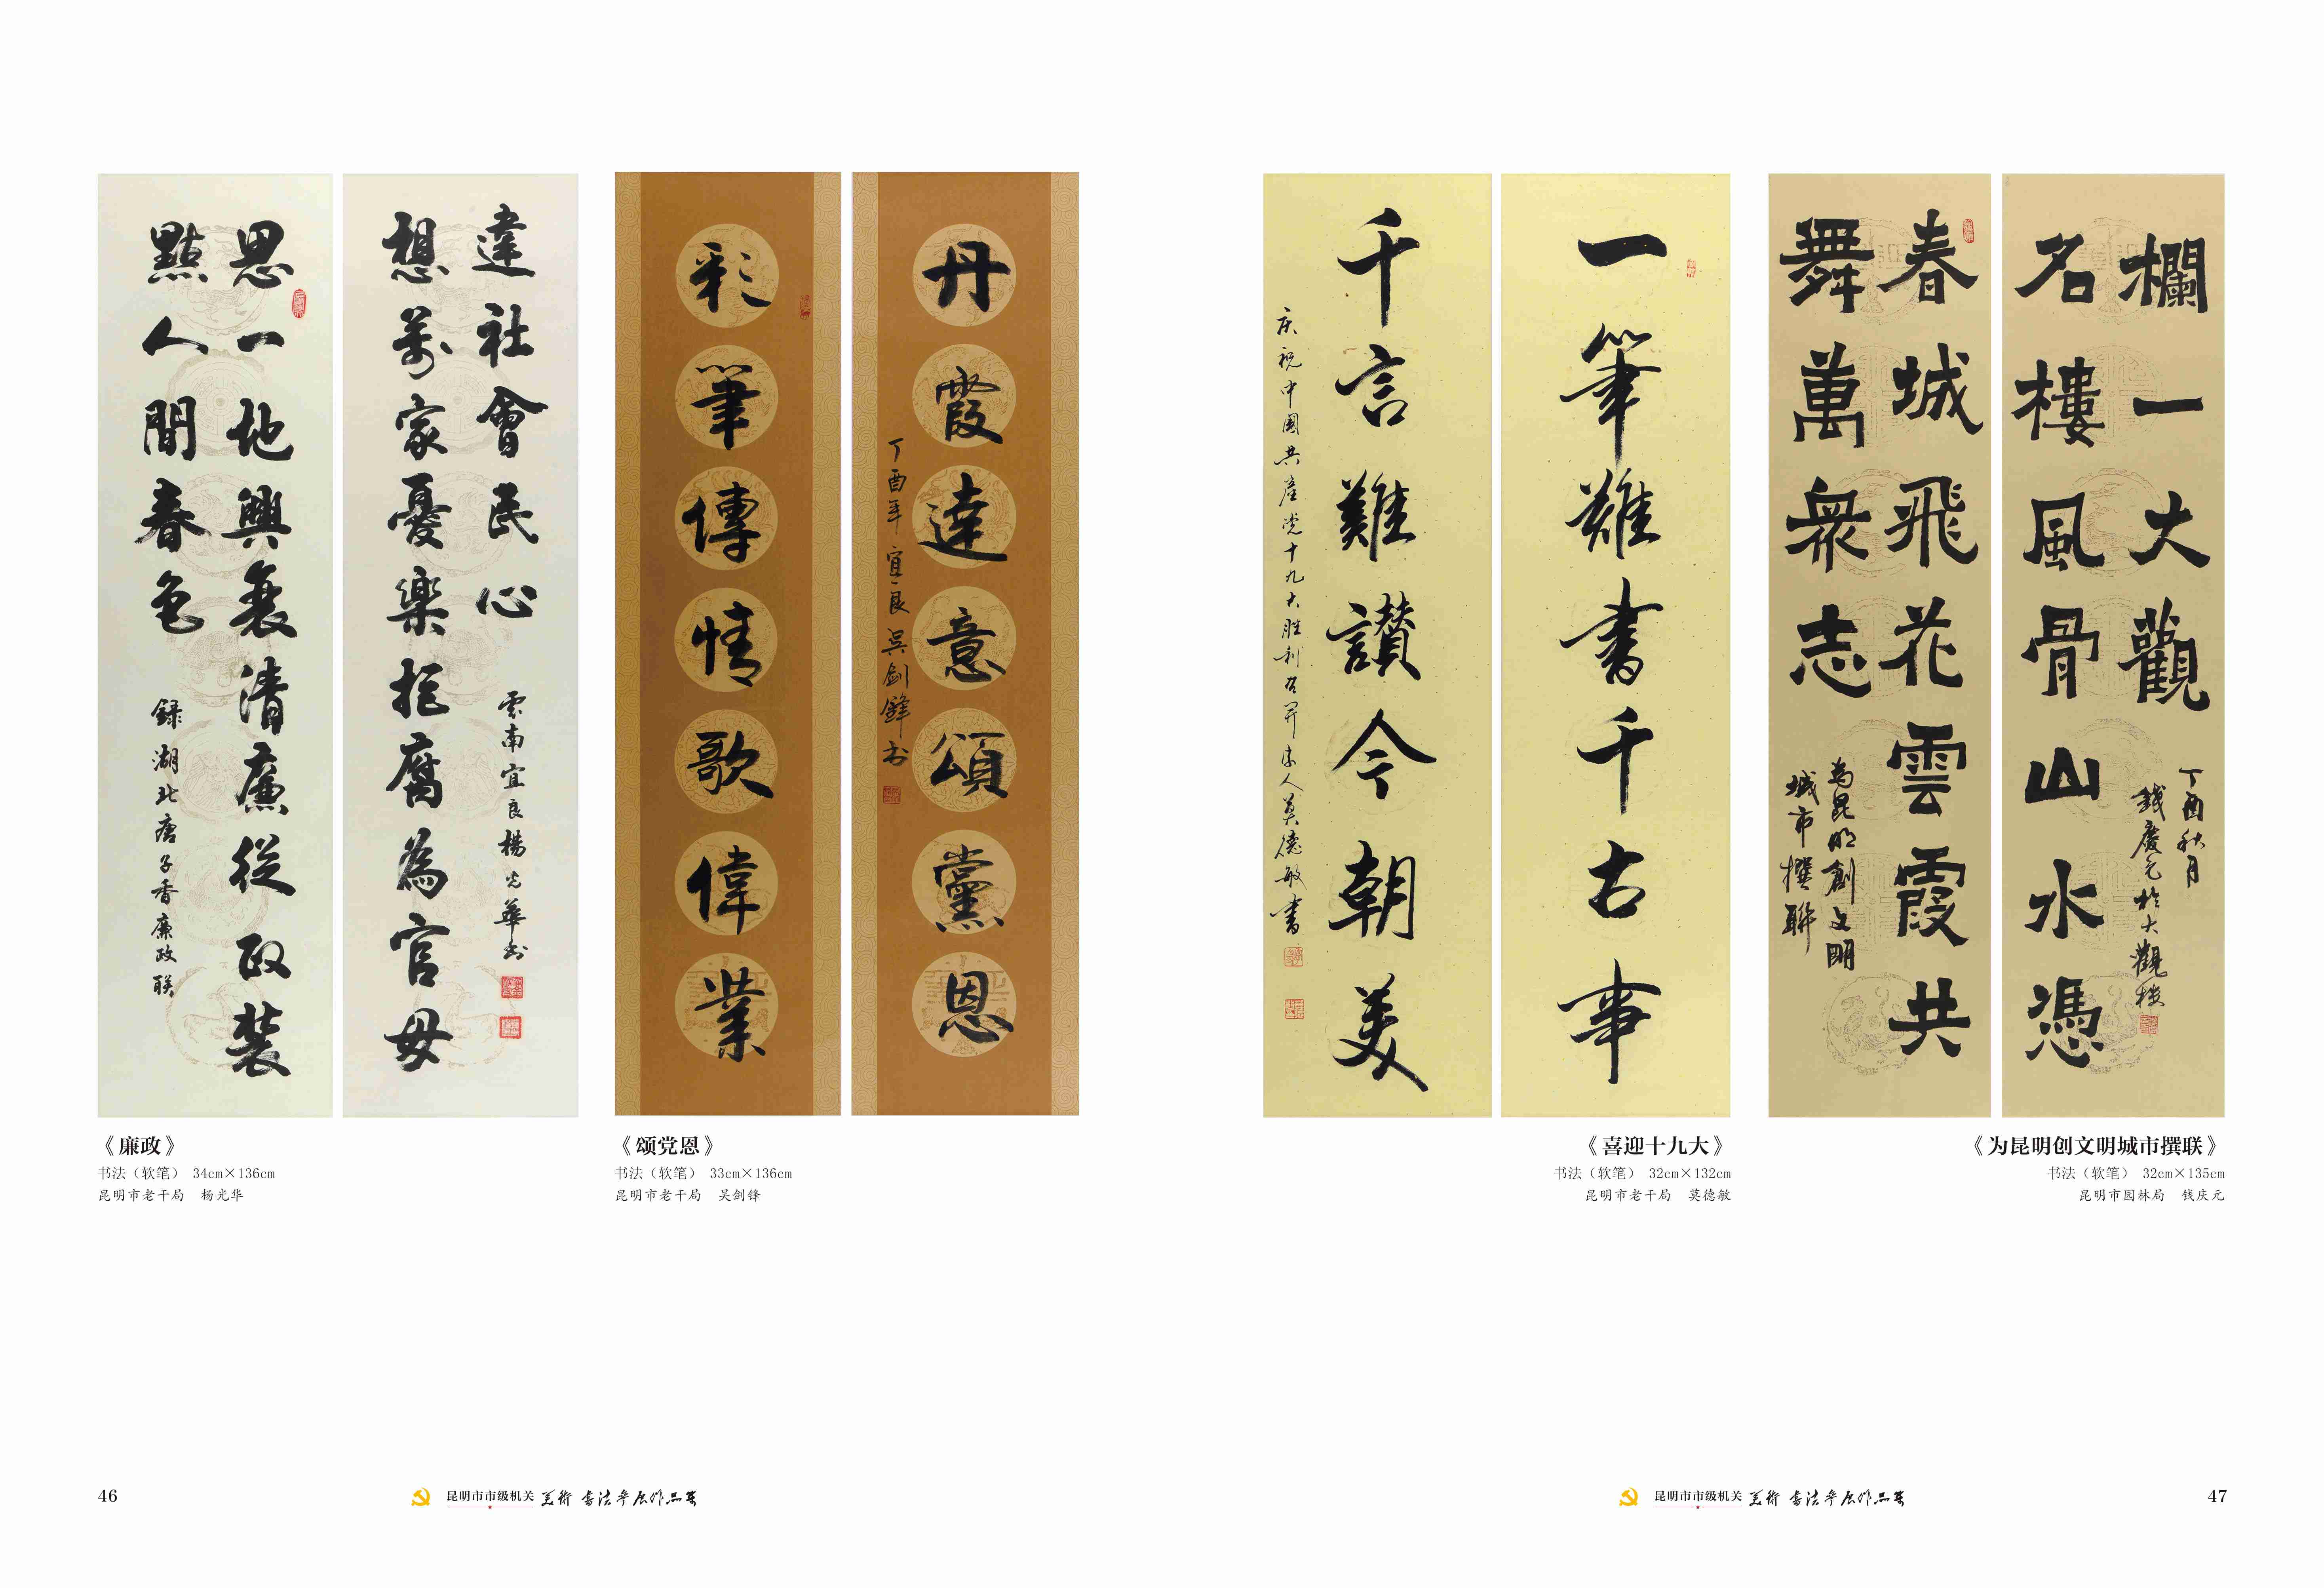 思一地興衰清廉從政裝
點人間春色
録湖北唐子香廉政联
想萬家憂樂拒腐為官毋
違社會民心
雲南宜良楊光華书
彩筆傳情歌偉業
丹霞達意頌黨恩
丁酉年宜良吴劍鋒书
一筆難書千古事
千言難讚今朝美
庆祝中國共產党十九大胜利召开 人莫德敏書
春城飛花雲霞共
舞萬衆志
為昆明創文明
城市撰聯
名樓風骨山水憑
欄一大觀
丁酉秋月
錢慶元於大觀楼
《廉政》
书法（软笔） 34cm×136cm
昆明市老干局 杨光华
《颂党恩》
书法（软笔） 33cm×136cm
昆明市老干局 吴剑锋
《喜迎十九大》
书法（软笔） 32cm×132cm
昆明市老干局 莫德敏
《为昆明创文明城市撰联》
书法（软笔） 32cm×135cm
昆明市园林局 钱庆元
46
昆明市市级机关 美術 書法 展作品集
昆明市市级机关 美術 書法 展作品集
47